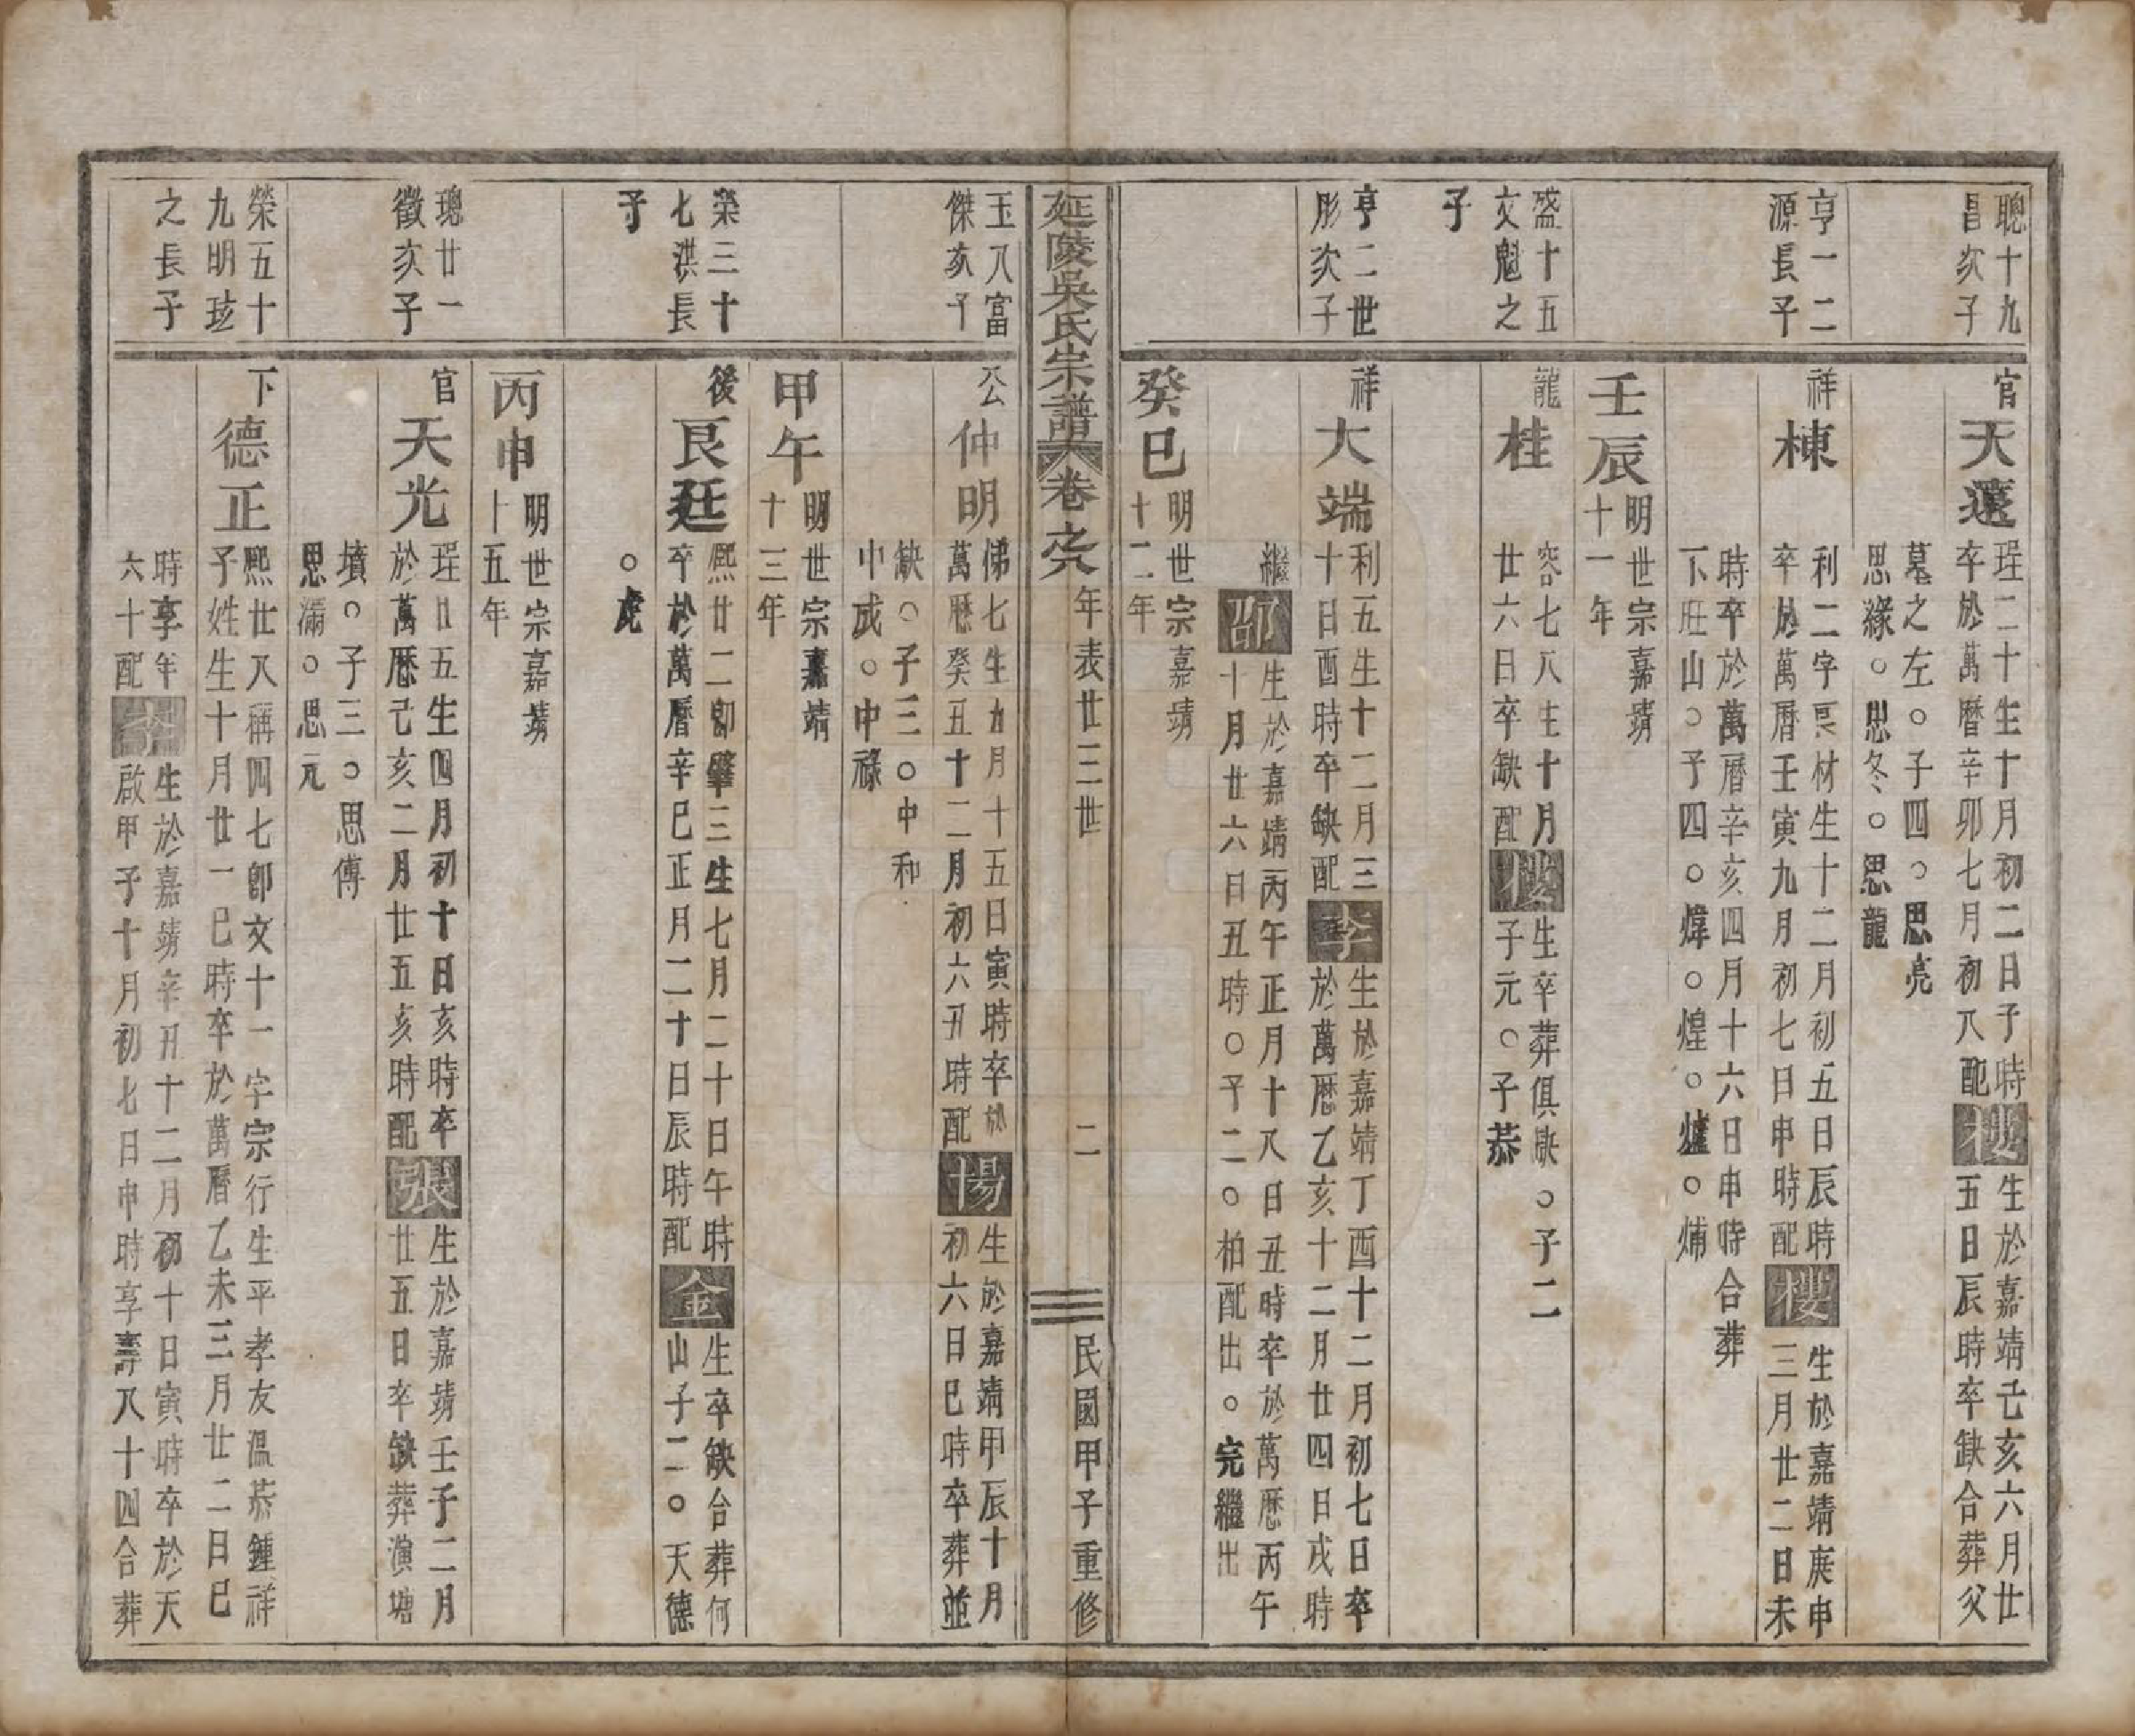 聰十九
昌次子
官
天還
珵二十生十月初二日子時
卒於萬曆辛卯七月初八配
樓
生於嘉靖乙亥六月廿
五日辰時卒缺合葬父
墓之左○子四○思亮
思緣○思冬○思龍
亨一二
源長子
祥
棟
利二字良材生十二月初五日辰時
卒於萬曆壬寅九月初七日申時配
樓
生於嘉靖庚申
三月廿二日未
時卒於萬曆辛亥四月十六日申時合葬
下旺山○子四○煒○煌○爐○燫
壬辰
明世宗嘉靖
十一年
盛十五
文魁之
子
龍
桂
容七八生十月
廿六日卒缺配
樓
生卒葬俱缺○子二
子元○子恭
亨二世
彤次子
祥
大端
利五生十二月三
十日酉時卒缺配
李
生於嘉靖丁酉十二月初七日卒
於萬曆乙亥十二月廿四日戌時
繼
邵
生於嘉靖丙午正月十八日丑時卒於萬曆丙午
十月廿六日丑時○子二○柏配出○完繼出
癸巳
明世宗嘉靖
十二年
延陵吳氏宗譜 卷之六 年表廿三世 二 民國甲子重修
玉八富
傑次子
公
仲明
悌七生九月十五日寅時卒於
萬曆癸丑十二月初六丑時配
楊
生於嘉靖甲辰十月
初六日巳時卒葬並
缺○子三○中和
中成○中祿
甲午
明世宗嘉靖
十三年
榮三十
七洪長
子
後
良廷
熙廿二卽肇三生七月二十日午時
卒於萬曆辛巳正月二十日辰時配
金
生卒缺合葬何
山子二○天德
○虎
丙申
明世宗嘉靖
十五年
璁廿一
徵次子
官
天光
珵廿五生四月初十日亥時卒
於萬曆己亥二月廿五亥時配
張
生於嘉靖壬子二月
廿五日卒缺葬演塘
墳○子三○思傅
思滿○思元
榮五十
九明玹
之長子
下
德正
熙廿八稱四七卽文十一字宗行生平孝友溫恭鍾祥
子姓生十月廿一巳時卒於萬曆乙未三月廿二日巳
時享年
六十配
李
生於嘉靖辛丑十二月初十日寅時卒於天
啟甲子十月初七日申時享壽八十四合葬